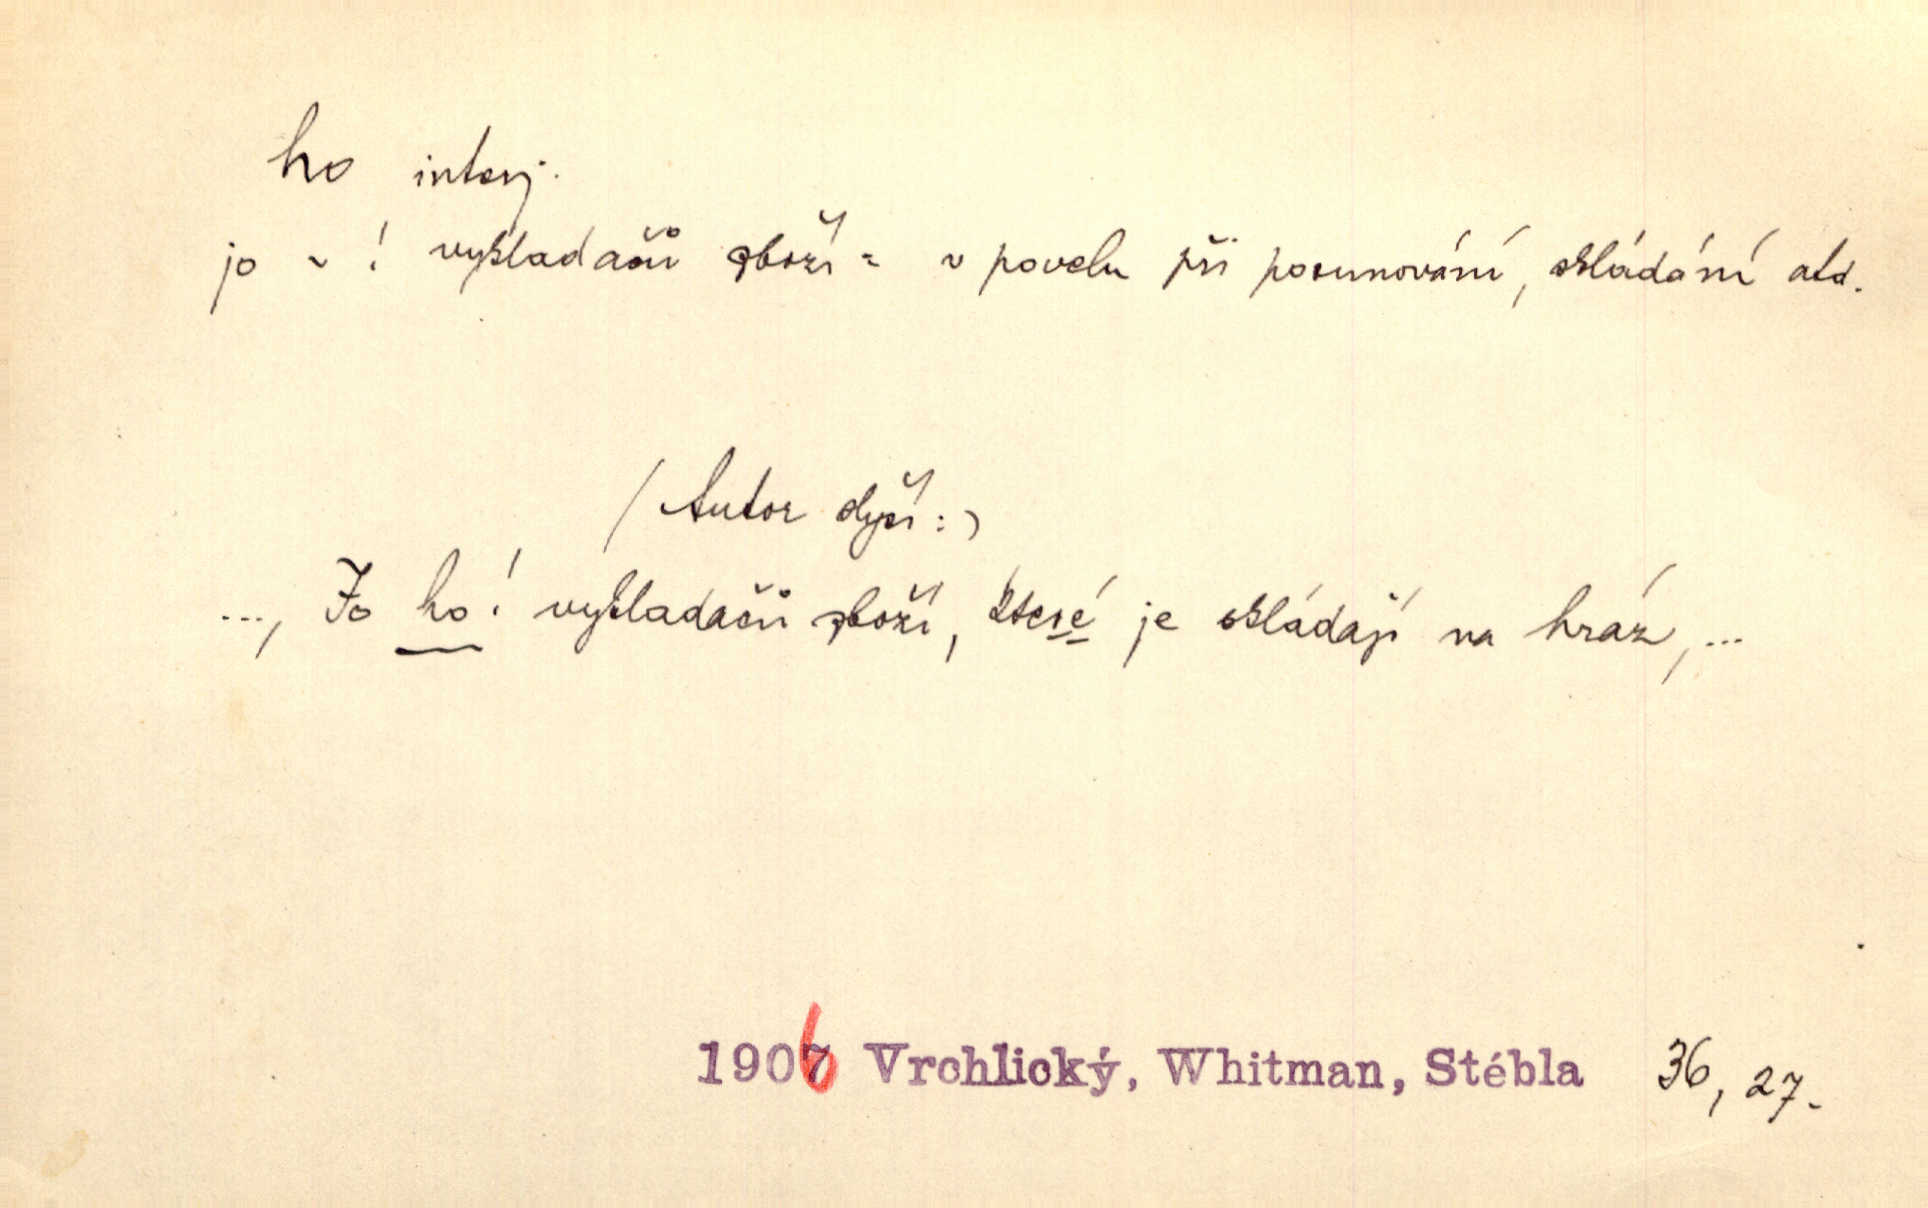 ho interj.
jo ~ ! vykladačů zboží = v povelu při posunování, skládání atd.
(Autor slyší:)
..., Jo ho! vykladačů zboží, které je skládají na hráz, ...
1906 Vrchlický, Whitman, Stébla 36, 27.